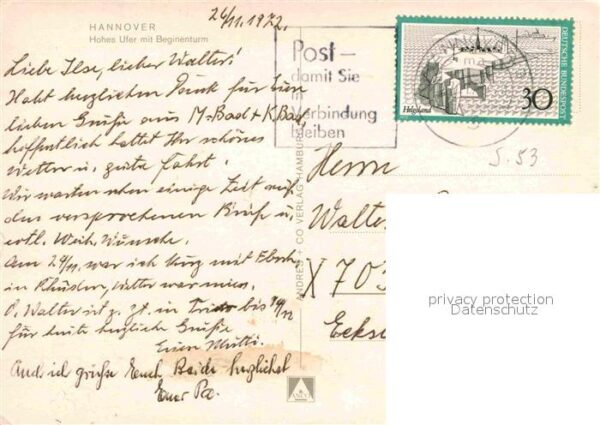 HANNOVER
Hohes Ufer mit Beginenturm
26/11.1972.
Liebe Ilse, lieber Walter!
Habt herzlichen Dank für Eure
lieben Grüße aus M-Bad + K.Bad
hoffentlich hattet Ihr schönes
Wetter u. gute Fahrt.
Wir warten schon einige Zeit auf
den versprochenen Brief u.
evtl. Weih. Wünsche.
Am 24/11. war ich kurz mit
in Rhüden, Wetter war mies.
O. Walter ist z. Zt. in bis
für heute herzliche Grüße
Eure Mutti.
Auch ich grüße Euch Beide herzlichst
Euer Pa.
Post –
damit Sie
in Verbindung
bleiben
HANNOVER
DEUTSCHE BUNDESPOST
Helgoland
30
S. 53
Herrn
Walter
X 703
ANDRES + CO VERLAG HAMBURG
ANCO
privacy protection
Datenschutz